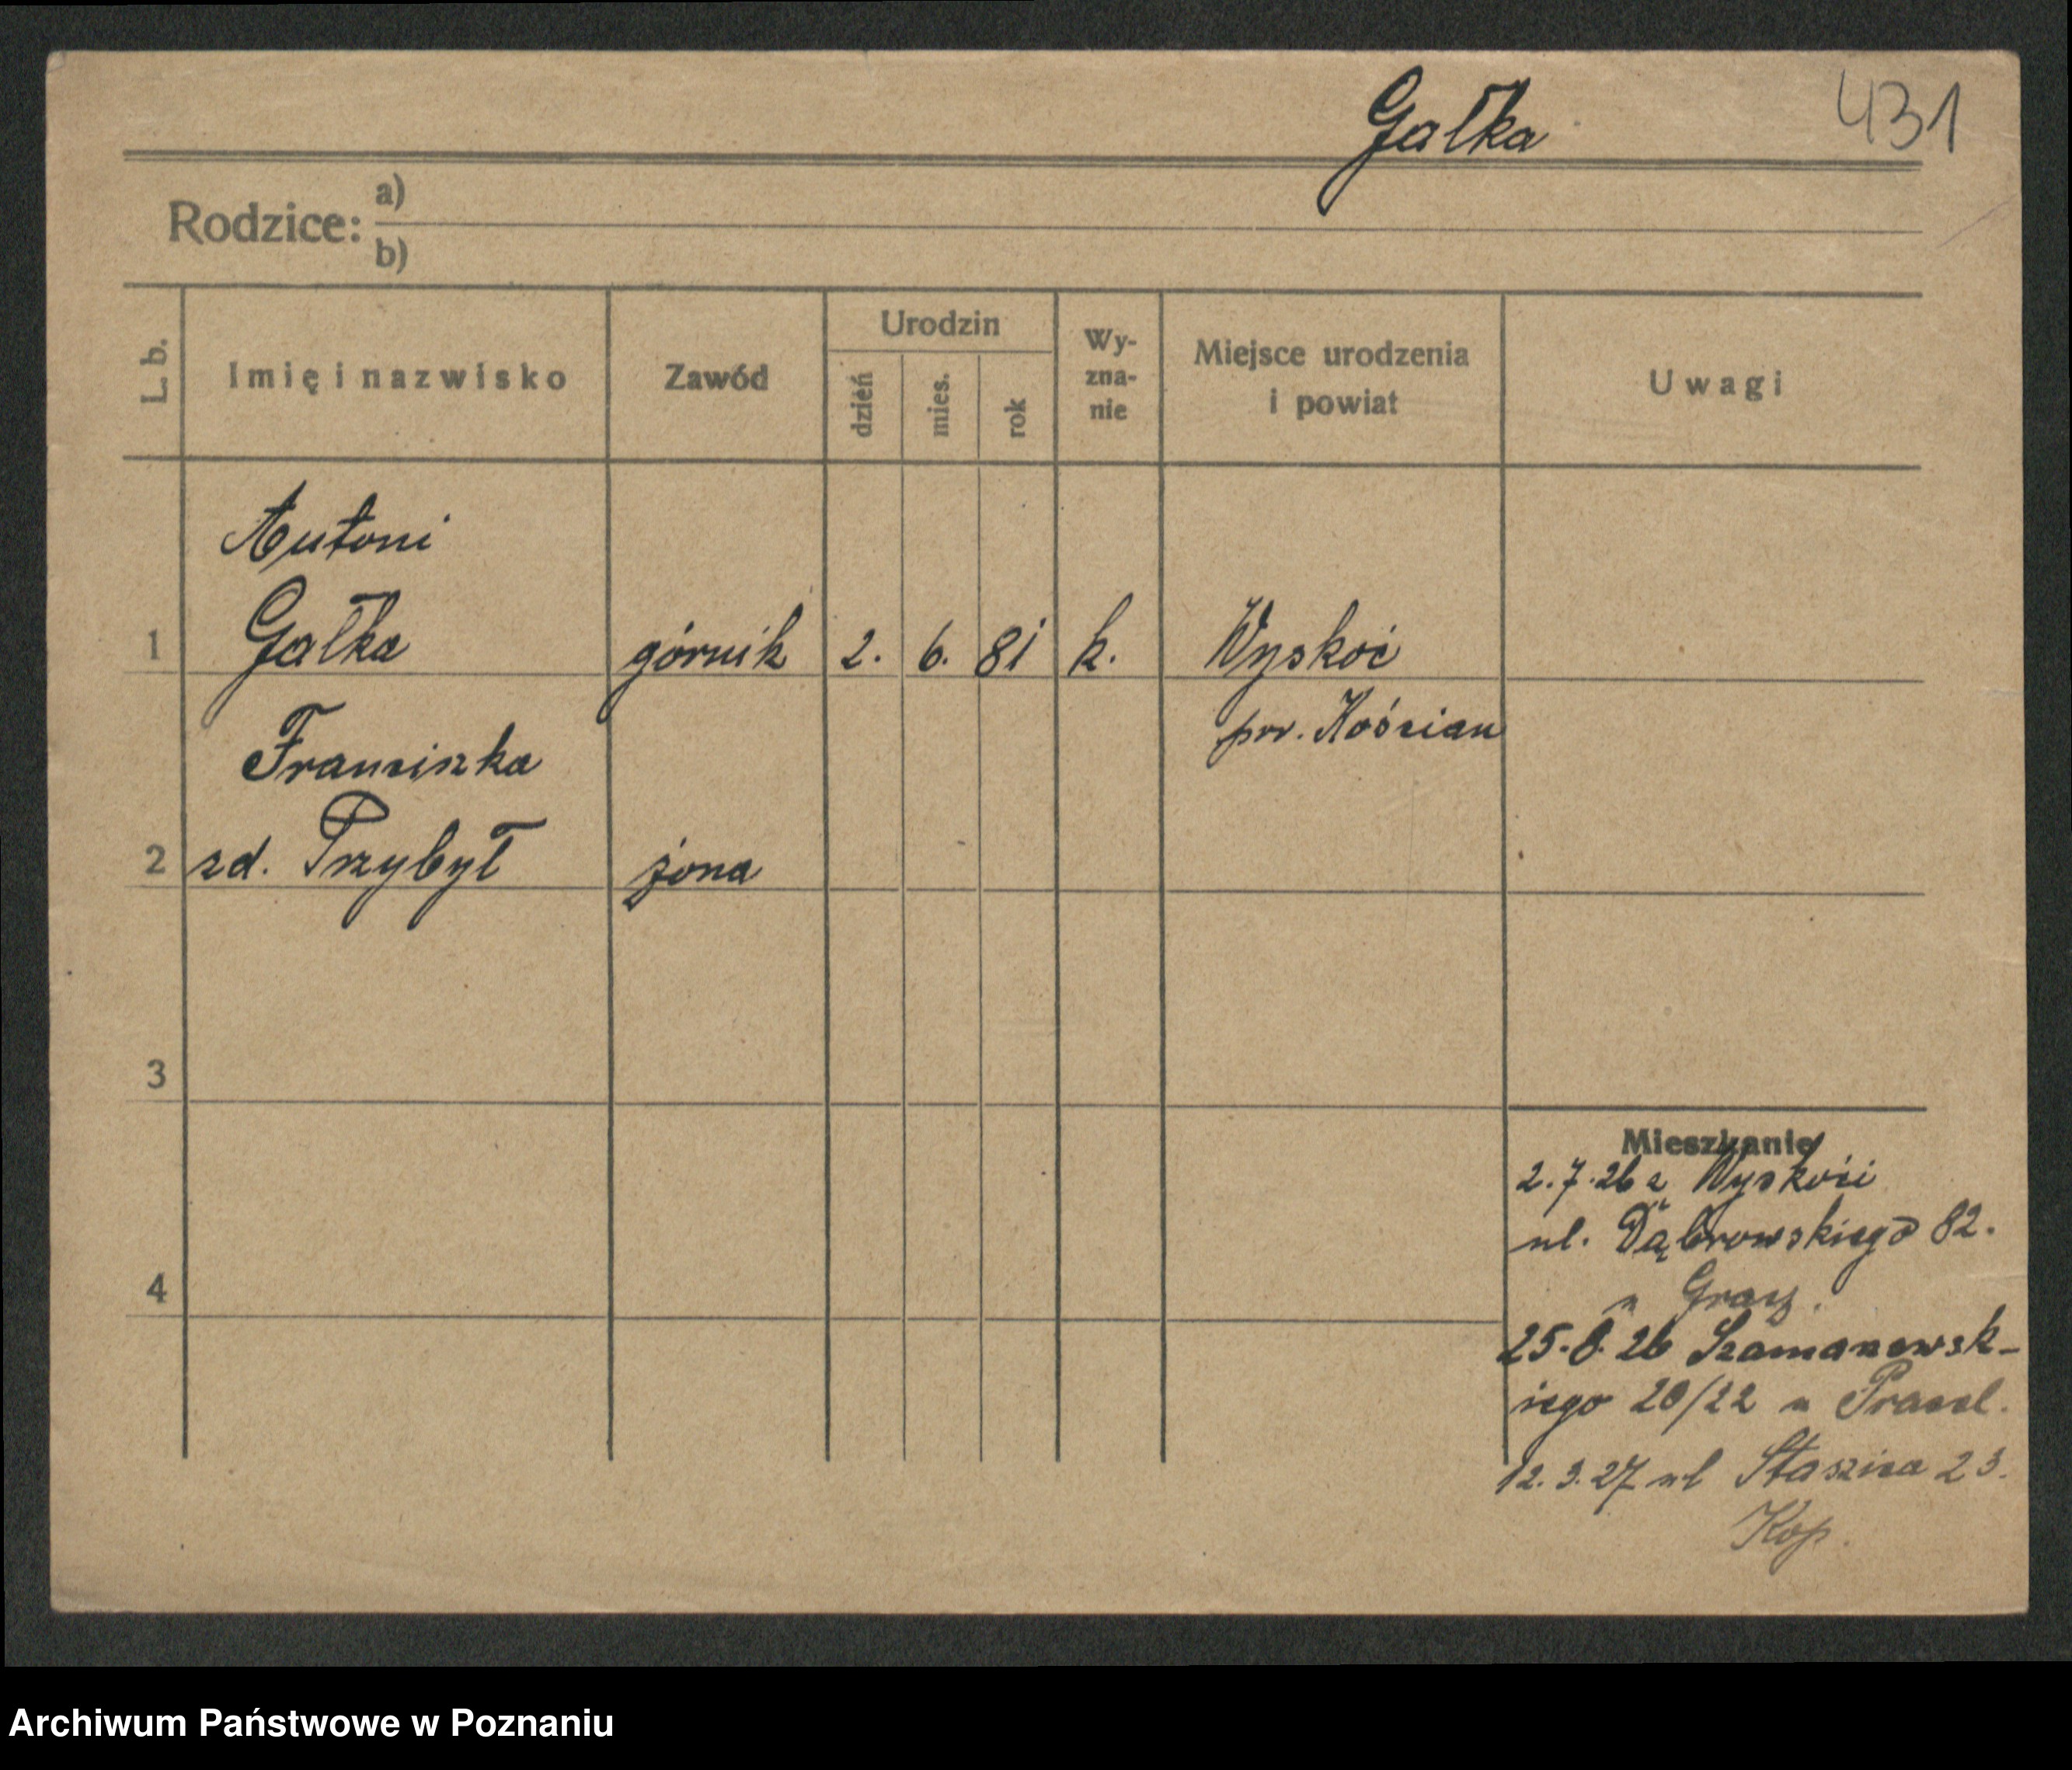 Gałka 431
Rodzice: a)
b)
L. b. Imię i nazwisko Zawód Urodzin dzień mies. rok Wy-zna-nie Miejsce urodzenia i powiat Uwagi
Antoni
1 Gałka górnik 2. 6. 81 k. Wyskoć
pow. Kościan
Franciszka
2 zd. Przybył żona
3
4
Mieszkanie
2.7.26 z Wyskoci
ul. Dąbrowskiego 82.
u
25.8.26 Szamarzewsk-
iego 20/22 u
12.3.27 ul Staszica 23.
Kop.
Archiwum Państwowe w Poznaniu